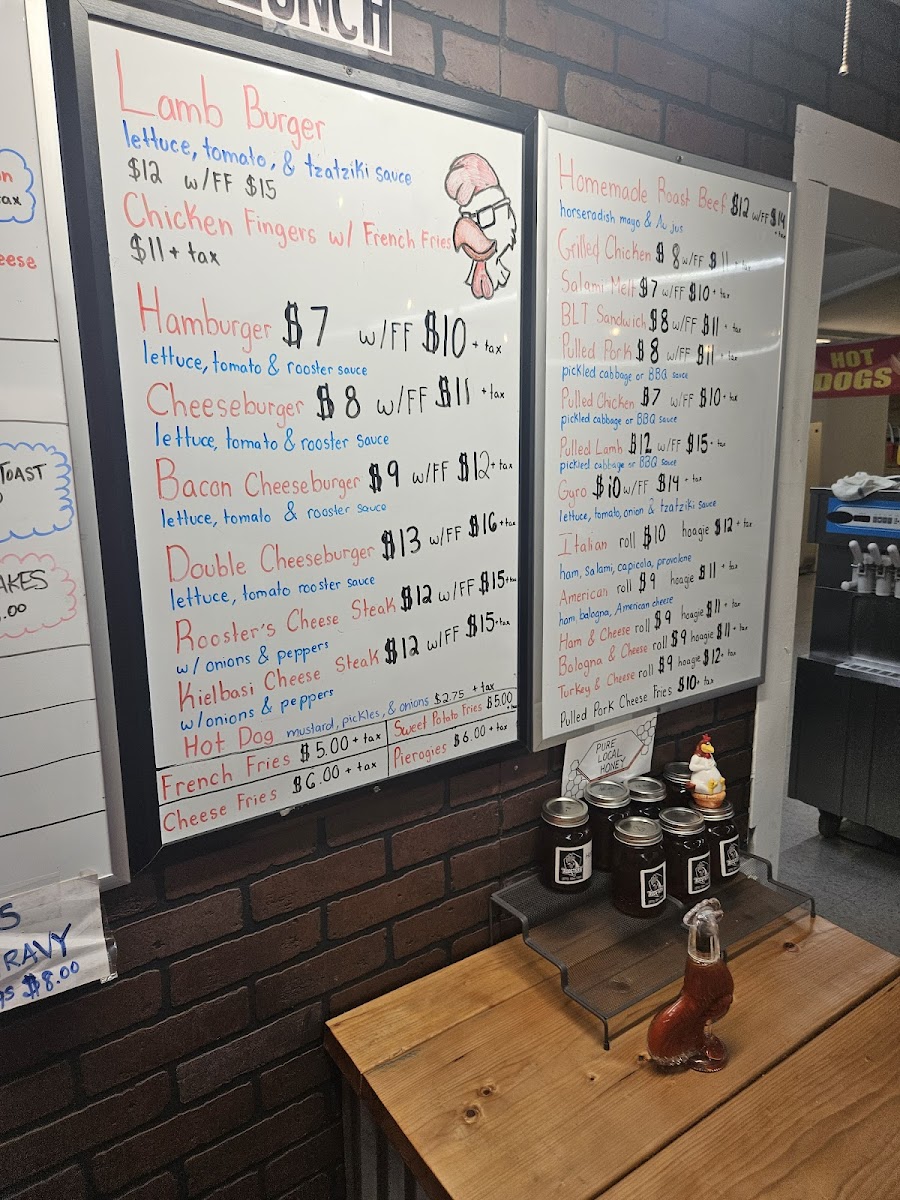 LUNCH
Lamb Burger
lettuce, tomato, & tzatziki sauce
$12 w/FF $15
Chicken Fingers w/ French Fries
$11 + tax
Hamburger $7 w/FF $10 + tax
lettuce, tomato & rooster sauce
Cheeseburger $8 w/FF $11 + tax
lettuce, tomato & rooster sauce
Bacon Cheeseburger $9 w/FF $12 + tax
lettuce, tomato & rooster sauce
Double Cheeseburger $13 w/FF $16 + tax
lettuce, tomato rooster sauce
Rooster's Cheese Steak $12 w/FF $15 + tax
w/ onions & peppers
Kielbasi Cheese Steak $12 w/FF $15 + tax
w/onions & peppers
Hot Dog mustard, pickles, & onions $2.75 + tax
French Fries $5.00 + tax
Sweet Potato Fries $5.00
Cheese Fries $6.00 + tax
Pierogies $6.00 + tax
Homemade Roast Beef $12 w/FF $14 + tax
horseradish mayo & Au jus
Grilled Chicken $8 w/FF $11 + tax
Salami Melt $7 w/FF $10 + tax
BLT Sandwich $8 w/FF $11 + tax
Pulled Pork $8 w/FF $11 + tax
pickled cabbage or BBQ sauce
Pulled Chicken $7 w/FF $10 + tax
pickled cabbage or BBQ sauce
Pulled Lamb $12 w/FF $15 + tax
pickled cabbage or BBQ sauce
Gyro $10 w/FF $14 + tax
lettuce, tomato, onion & tzatziki sauce
Italian roll $10 hoagie $12 + tax
ham, salami, capicola, provolone
American roll $9 hoagie $11 + tax
ham, bologna, American cheese
Ham & Cheese roll $9 hoagie $11 + tax
Bologna & Cheese roll $9 hoagie $11 + tax
Turkey & Cheese roll $9 hoagie $12 + tax
Pulled Pork Cheese Fries $10 + tax
PURE
LOCAL
HONEY
HOT
DOGS
tax
TOAST
AKES
.00
RAVY
$8.00